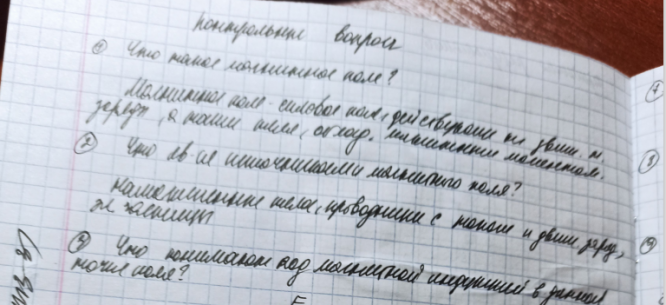 Контрольные вопросы
① Что такое магнитное поле?
Магнитное поле - силовое поле, действующее на движ. эл.
заряды, а также тела, облад. магнитным моментом.
② Что яв-ся источниками магнитного поля?
Намагниченные тела, проводники с током и движ. заряж.
эл частицы
③ Что понимают под магнитной индукцией в данной
точке поля?